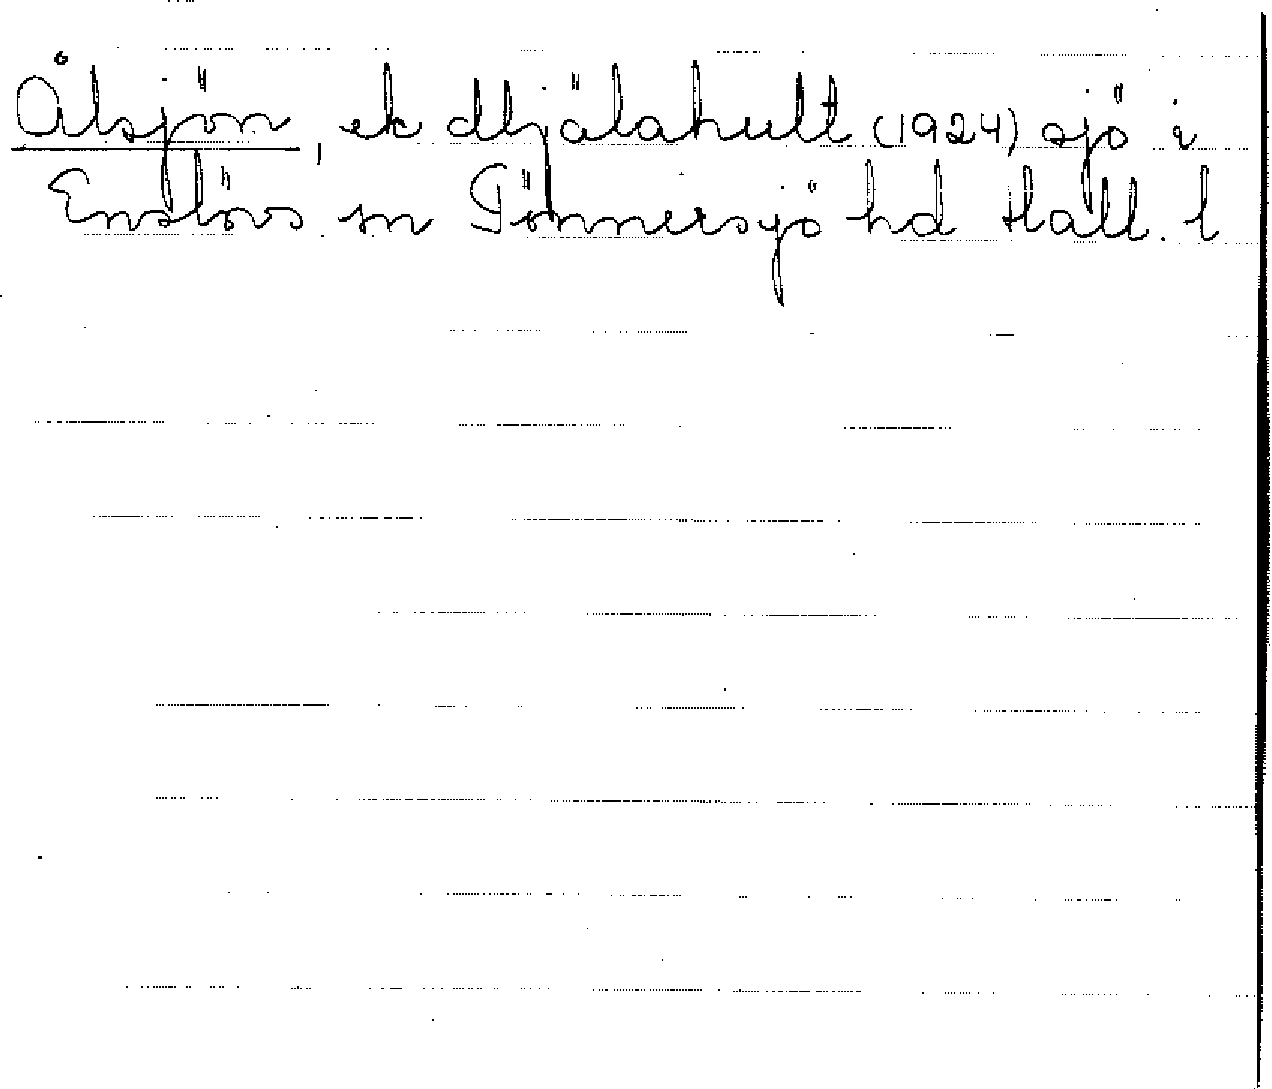 Ålsjön, ek Mjälahult (1924) sjö i
Enslövs sn Tönnersjö hd Hall. l